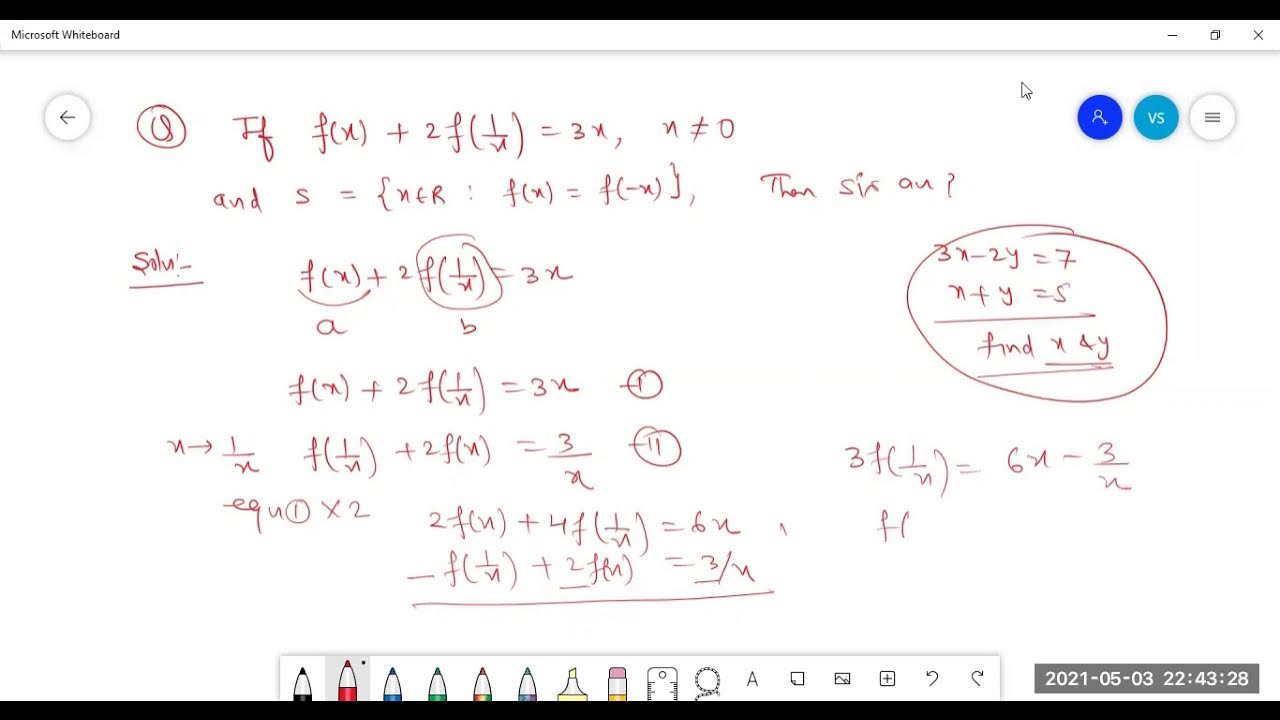 Microsoft Whiteboard
VS
Q If f(x) + 2f(1/x) = 3x, x ≠ 0
and S = {x∈R : f(x) = f(-x)}, Then S is an?
Soln:-
f(x) + 2f(1/x) = 3x
a b
3x-2y = 7
x+y = 5
find x & y
f(x) + 2f(1/x) = 3x - I
x → 1/x f(1/x) + 2f(x) = 3/x - II
equ I × 2
2f(x) + 4f(1/x) = 6x
- f(1/x) + 2f(x) = 3/x
3f(1/x) = 6x - 3/x
f(
A
2021-05-03 22:43:28